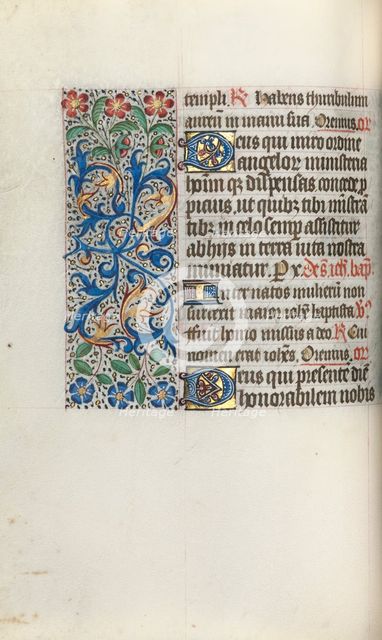 templi. R Habens thuribulum
aureu in manu sua. Oremus. or
Deus qui miro ordine
angelor ministeria
hoim qz dispensas concede p
picius. ut quibz tibi mistra
tibz in celo semper assistitur
ab hijs in terra uita nostra
muniatur. P x. De s. ioh. bap.
Inter natos mulieru non
surexit maior iohe baptista. V.
Fuit homo missus a deo. R Cui
nomen erat iohes. Oremus. or
Deus qui presente die
honorabilem nobis
Heritage